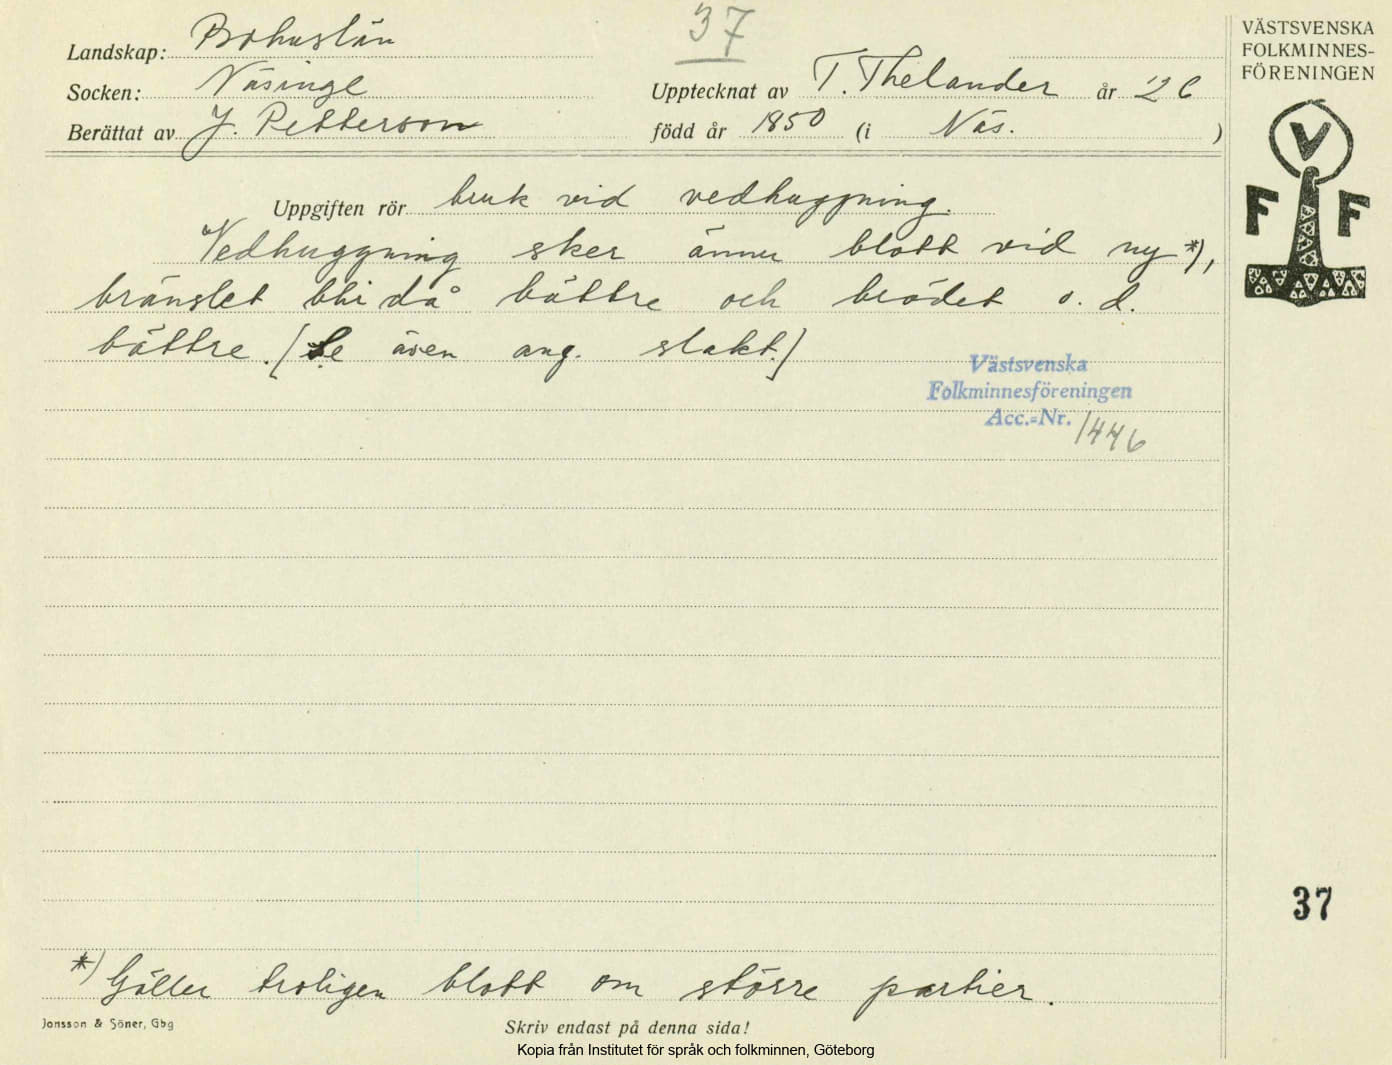 37
Landskap: Bohuslän
Socken: Näsinge
Upptecknat av T. Thelander år '26
Berättat av J. Petterson
född år 1850 (i Näs. )
Uppgiften rör bruk vid vedhuggning.
Vedhuggning sker ännu blott vid ny *),
bränslet blir då bättre och brödet o. d.
bättre. (Se även ang. slakt.)
Västsvenska
Folkminnesföreningen
Acc.-Nr. 1446
*) Gäller troligen blott om större partier.
Jonsson & Söner, Gbg
Skriv endast på denna sida!
Kopia från Institutet för språk och folkminnen, Göteborg
VÄSTSVENSKA
FOLKMINNES-
FÖRENINGEN
V
F F
37